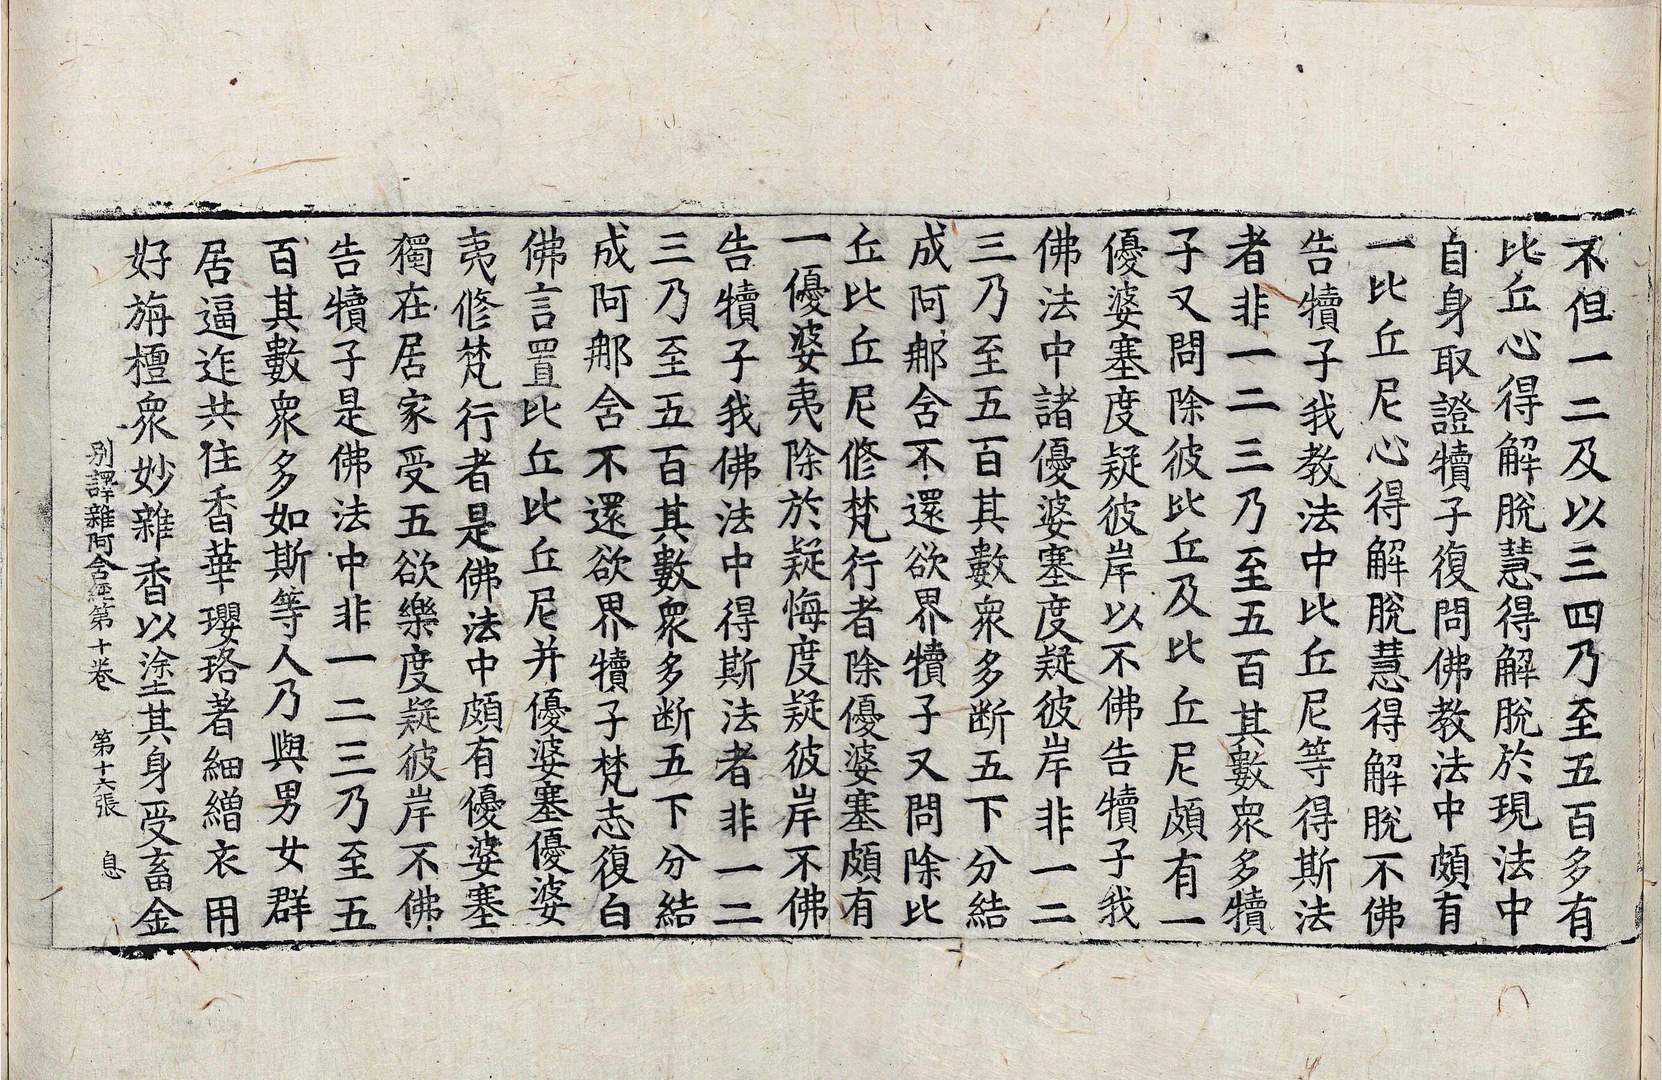 不但一二及以三四乃至五百多有
比丘心得解脫慧得解脫於現法中
自身取證犢子復問佛教法中頗有
一比丘尼心得解脫慧得解脫不佛
告犢子我教法中比丘尼等得斯法
者非一二三乃至五百其數衆多犢
子又問除彼比丘及比丘尼頗有一
優婆塞度疑彼岸以不佛告犢子我
佛法中諸優婆塞度疑彼岸非一二
三乃至五百其數衆多断五下分結
成阿那含不還欲界犢子又問除比
丘比丘尼修梵行者除優婆塞頗有
一優婆夷除於疑悔度疑彼岸不佛
告犢子我佛法中得斯法者非一二
三乃至五百其數衆多断五下分結
成阿那含不還欲界犢子梵志復白
佛言置比丘比丘尼并優婆塞優婆
夷修梵行者是佛法中頗有優婆塞
獨在居家受五欲樂度疑彼岸不佛
告犢子是佛法中非一二三乃至五
百其數衆多如斯等人乃與男女群
居逼迮共住香華瓔珞著細繒衣用
好旃檀衆妙雜香以塗其身受畜金
別譯雜阿含經第十卷 第十六張 息